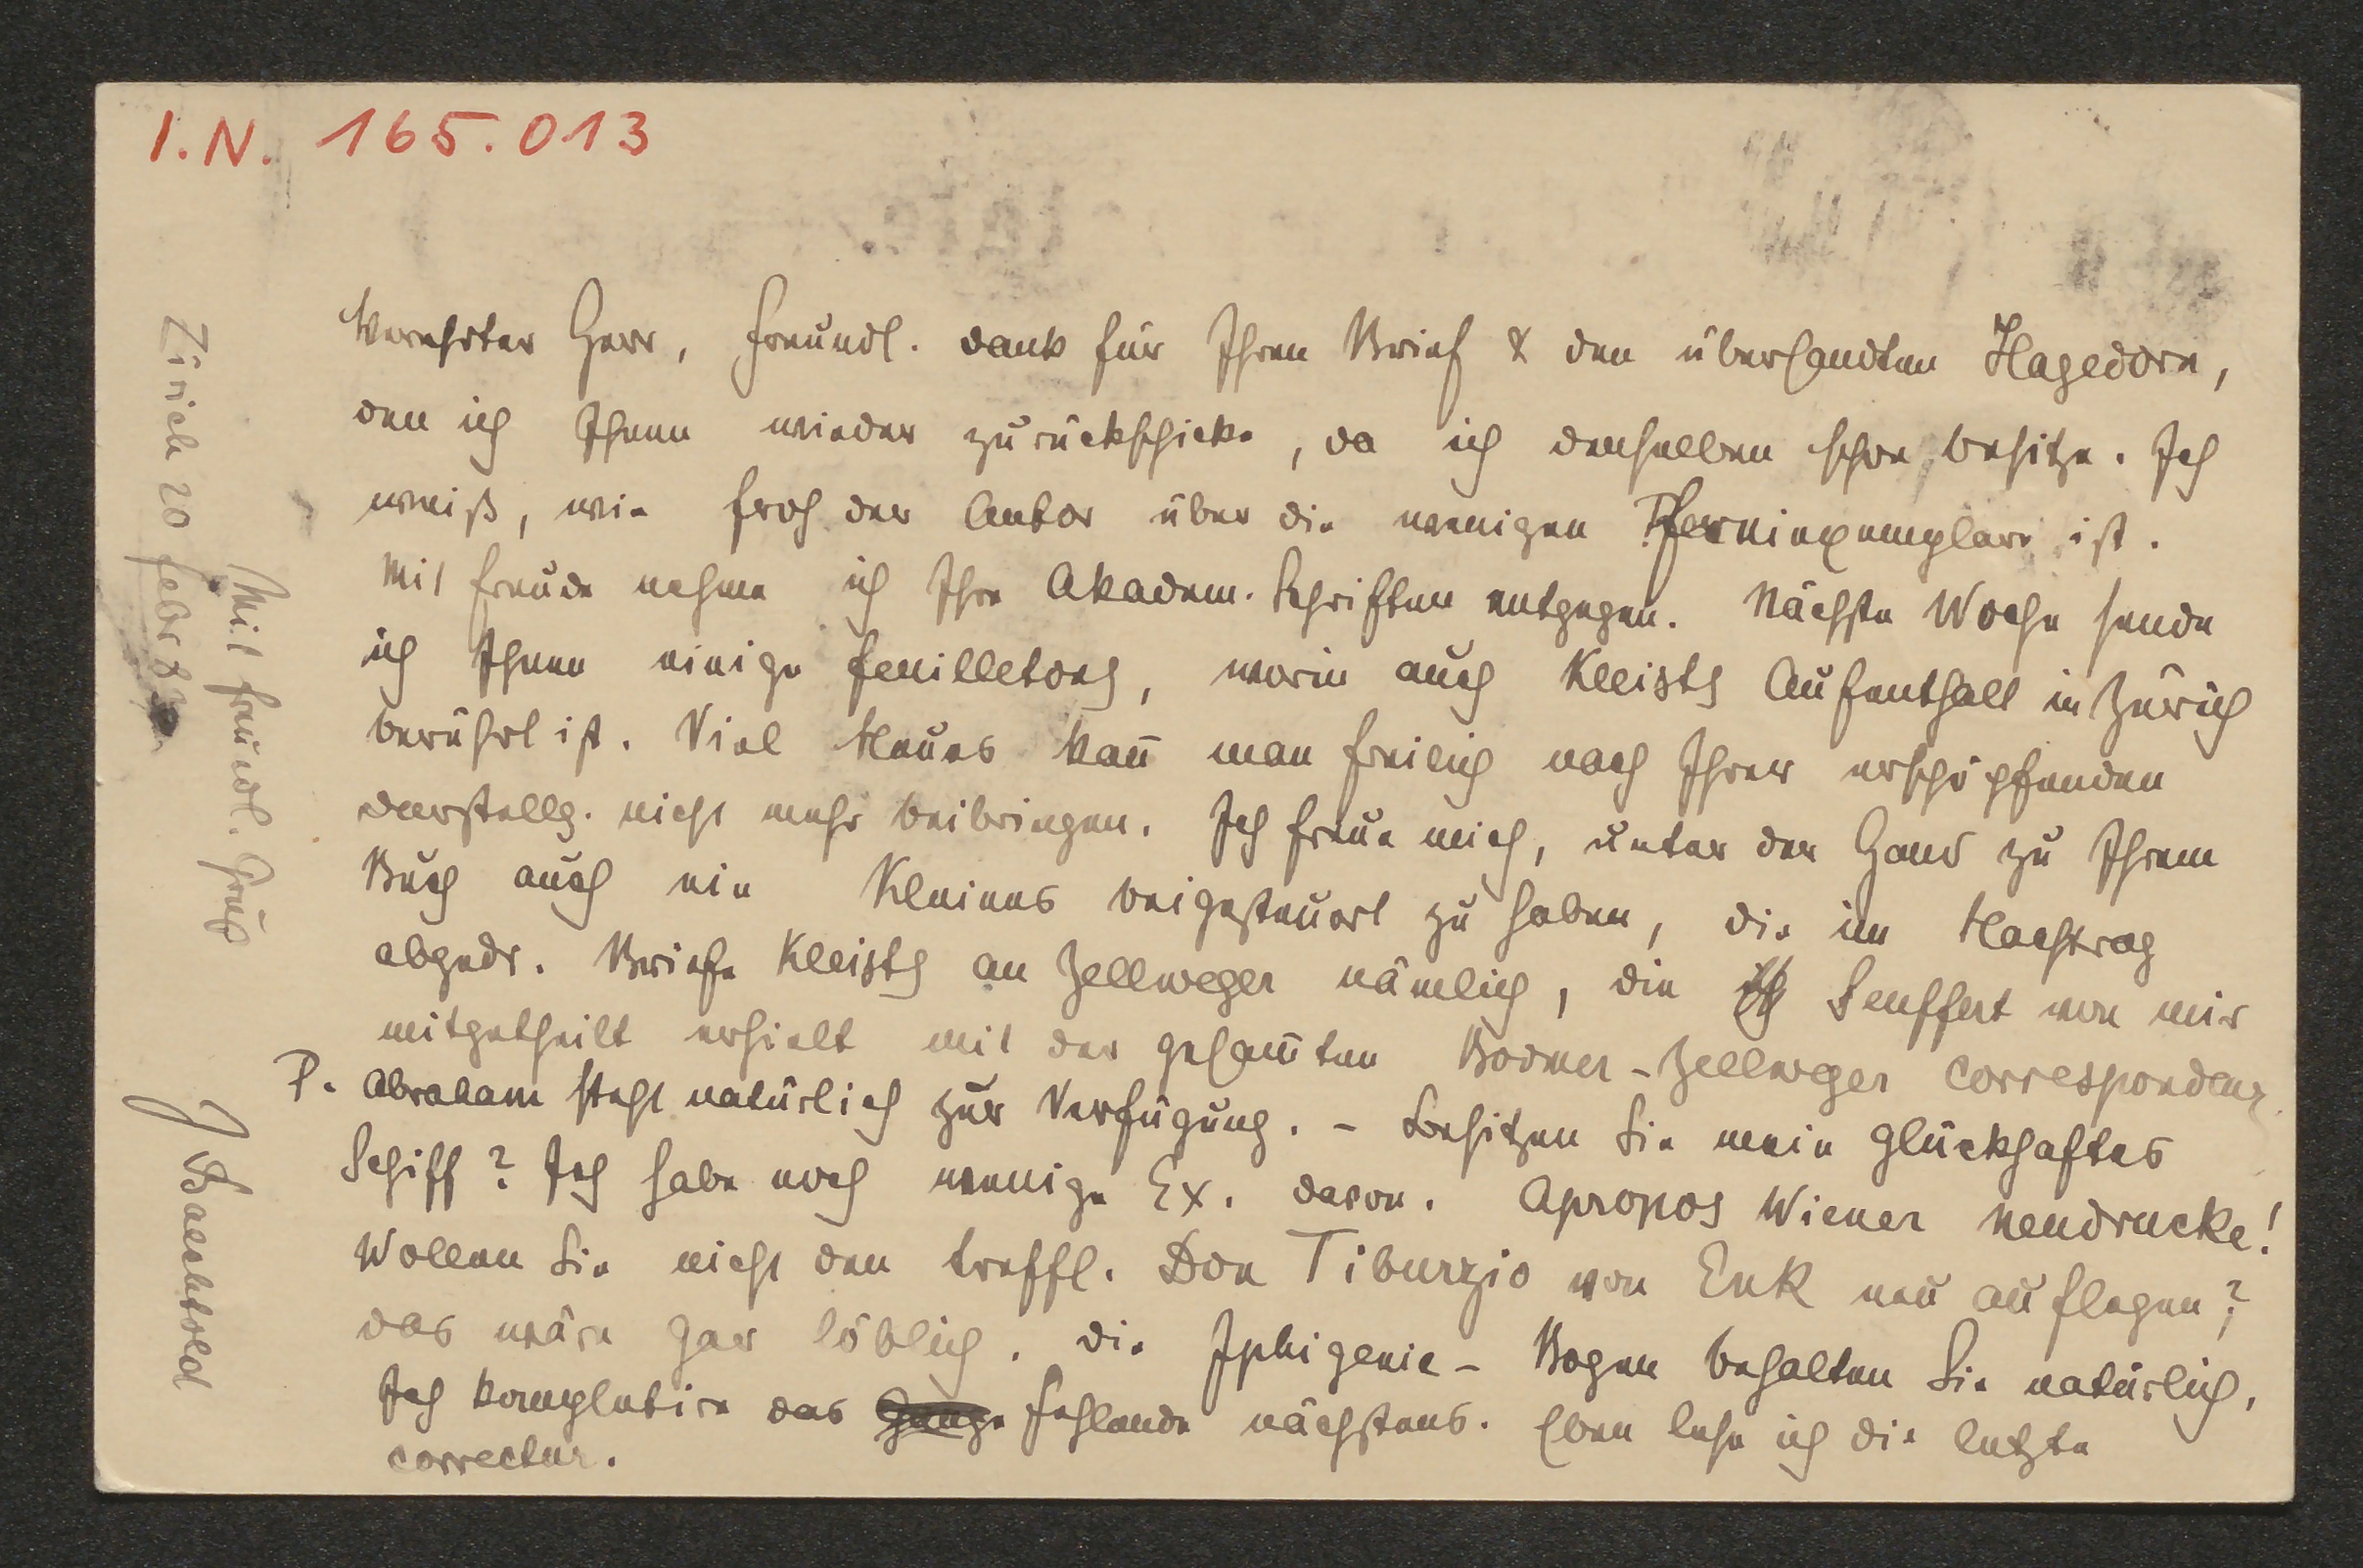 I.N. 165.013
Verehrter Herr, freundl. Dank für Ihren Brief & den übersandten Hagedorn,
den ich Ihnen wieder zurückschicke, da ich denselben schon besitze. Ich
weiß, wie froh der Autor über die wenigen Freiexemplare ist.
Mit Freude nehme ich Ihre Akadem. Schriften entgegen. Nächste Woche sende
ich Ihnen einige Feuilletons, worin auch Kleists Aufenthalt in Zürich
berührt ist. Viel Neues kan̅ man freilich nach Ihrer erschöpfenden
Darstellg. nicht mehr beibringen. Ich freue mich, unter der Hand zu Ihrem
Buch auch ein Kleines beigesteuert zu haben, die im Nachtrag
abgedr. Briefe Kleists an Zellweger nämlich, die Seuffert von mir
mitgetheilt erhielt mit der gesam̅ten Bodmer-Zellweger Correspondenz.
P. Abraham steht natürlich zur Verfügung. - Besitzen Sie mein Glückhaftes
Schiff? Ich habe noch wenige Ex. davon. Apropos Wiener Neudrucke!
Wollen Sie nicht den treffl. Don Tiburzio von Enk neu auflegen?
Das wäre gar löblich. Die Iphigenie-Bogen behalten Sie natürlich.
Ich kompletire das Ganze Fehlende nächstens. Eben lese ich die letzte
Correctur.
Mit freundl. Gruß
J Baechtold
Zürich 20 Febr 83